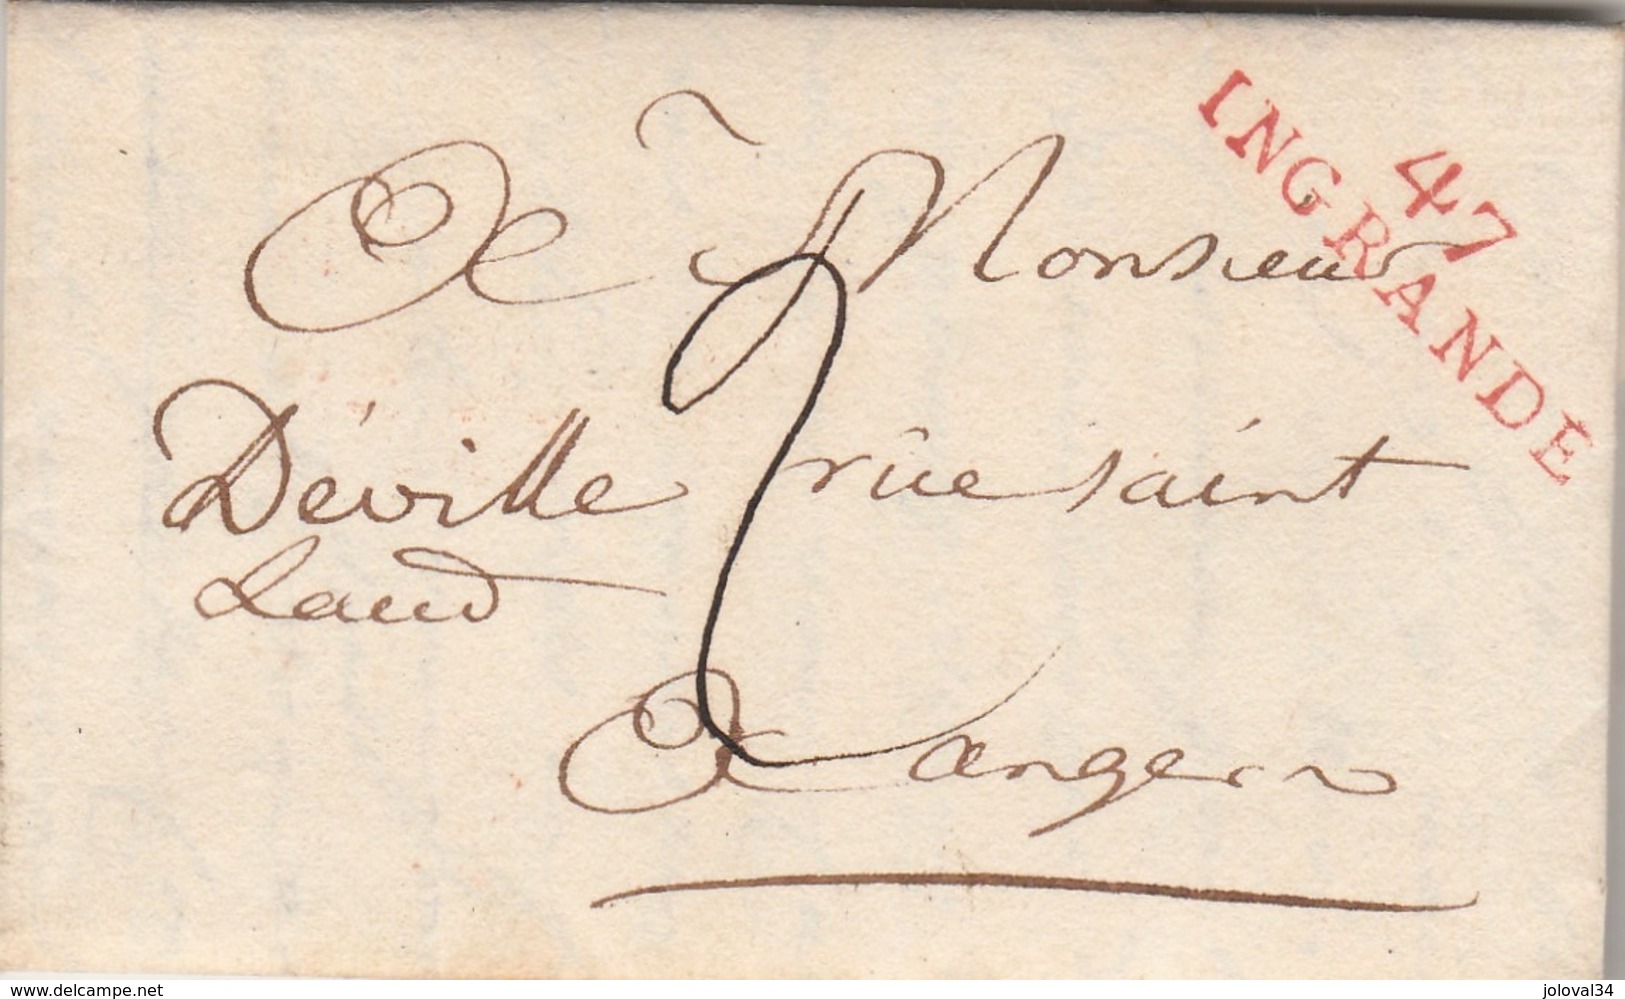 47
INGRANDE
A Monsieur
Déville rüe saint
Laud
2
A angers
www.delcampe.net
joloval34